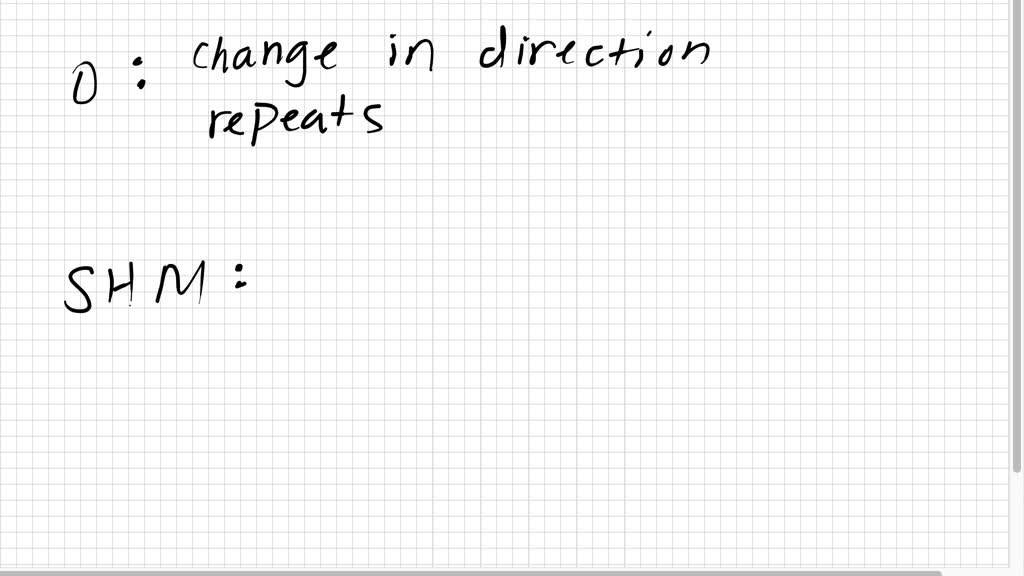 O: change in direction
repeats
SHM: